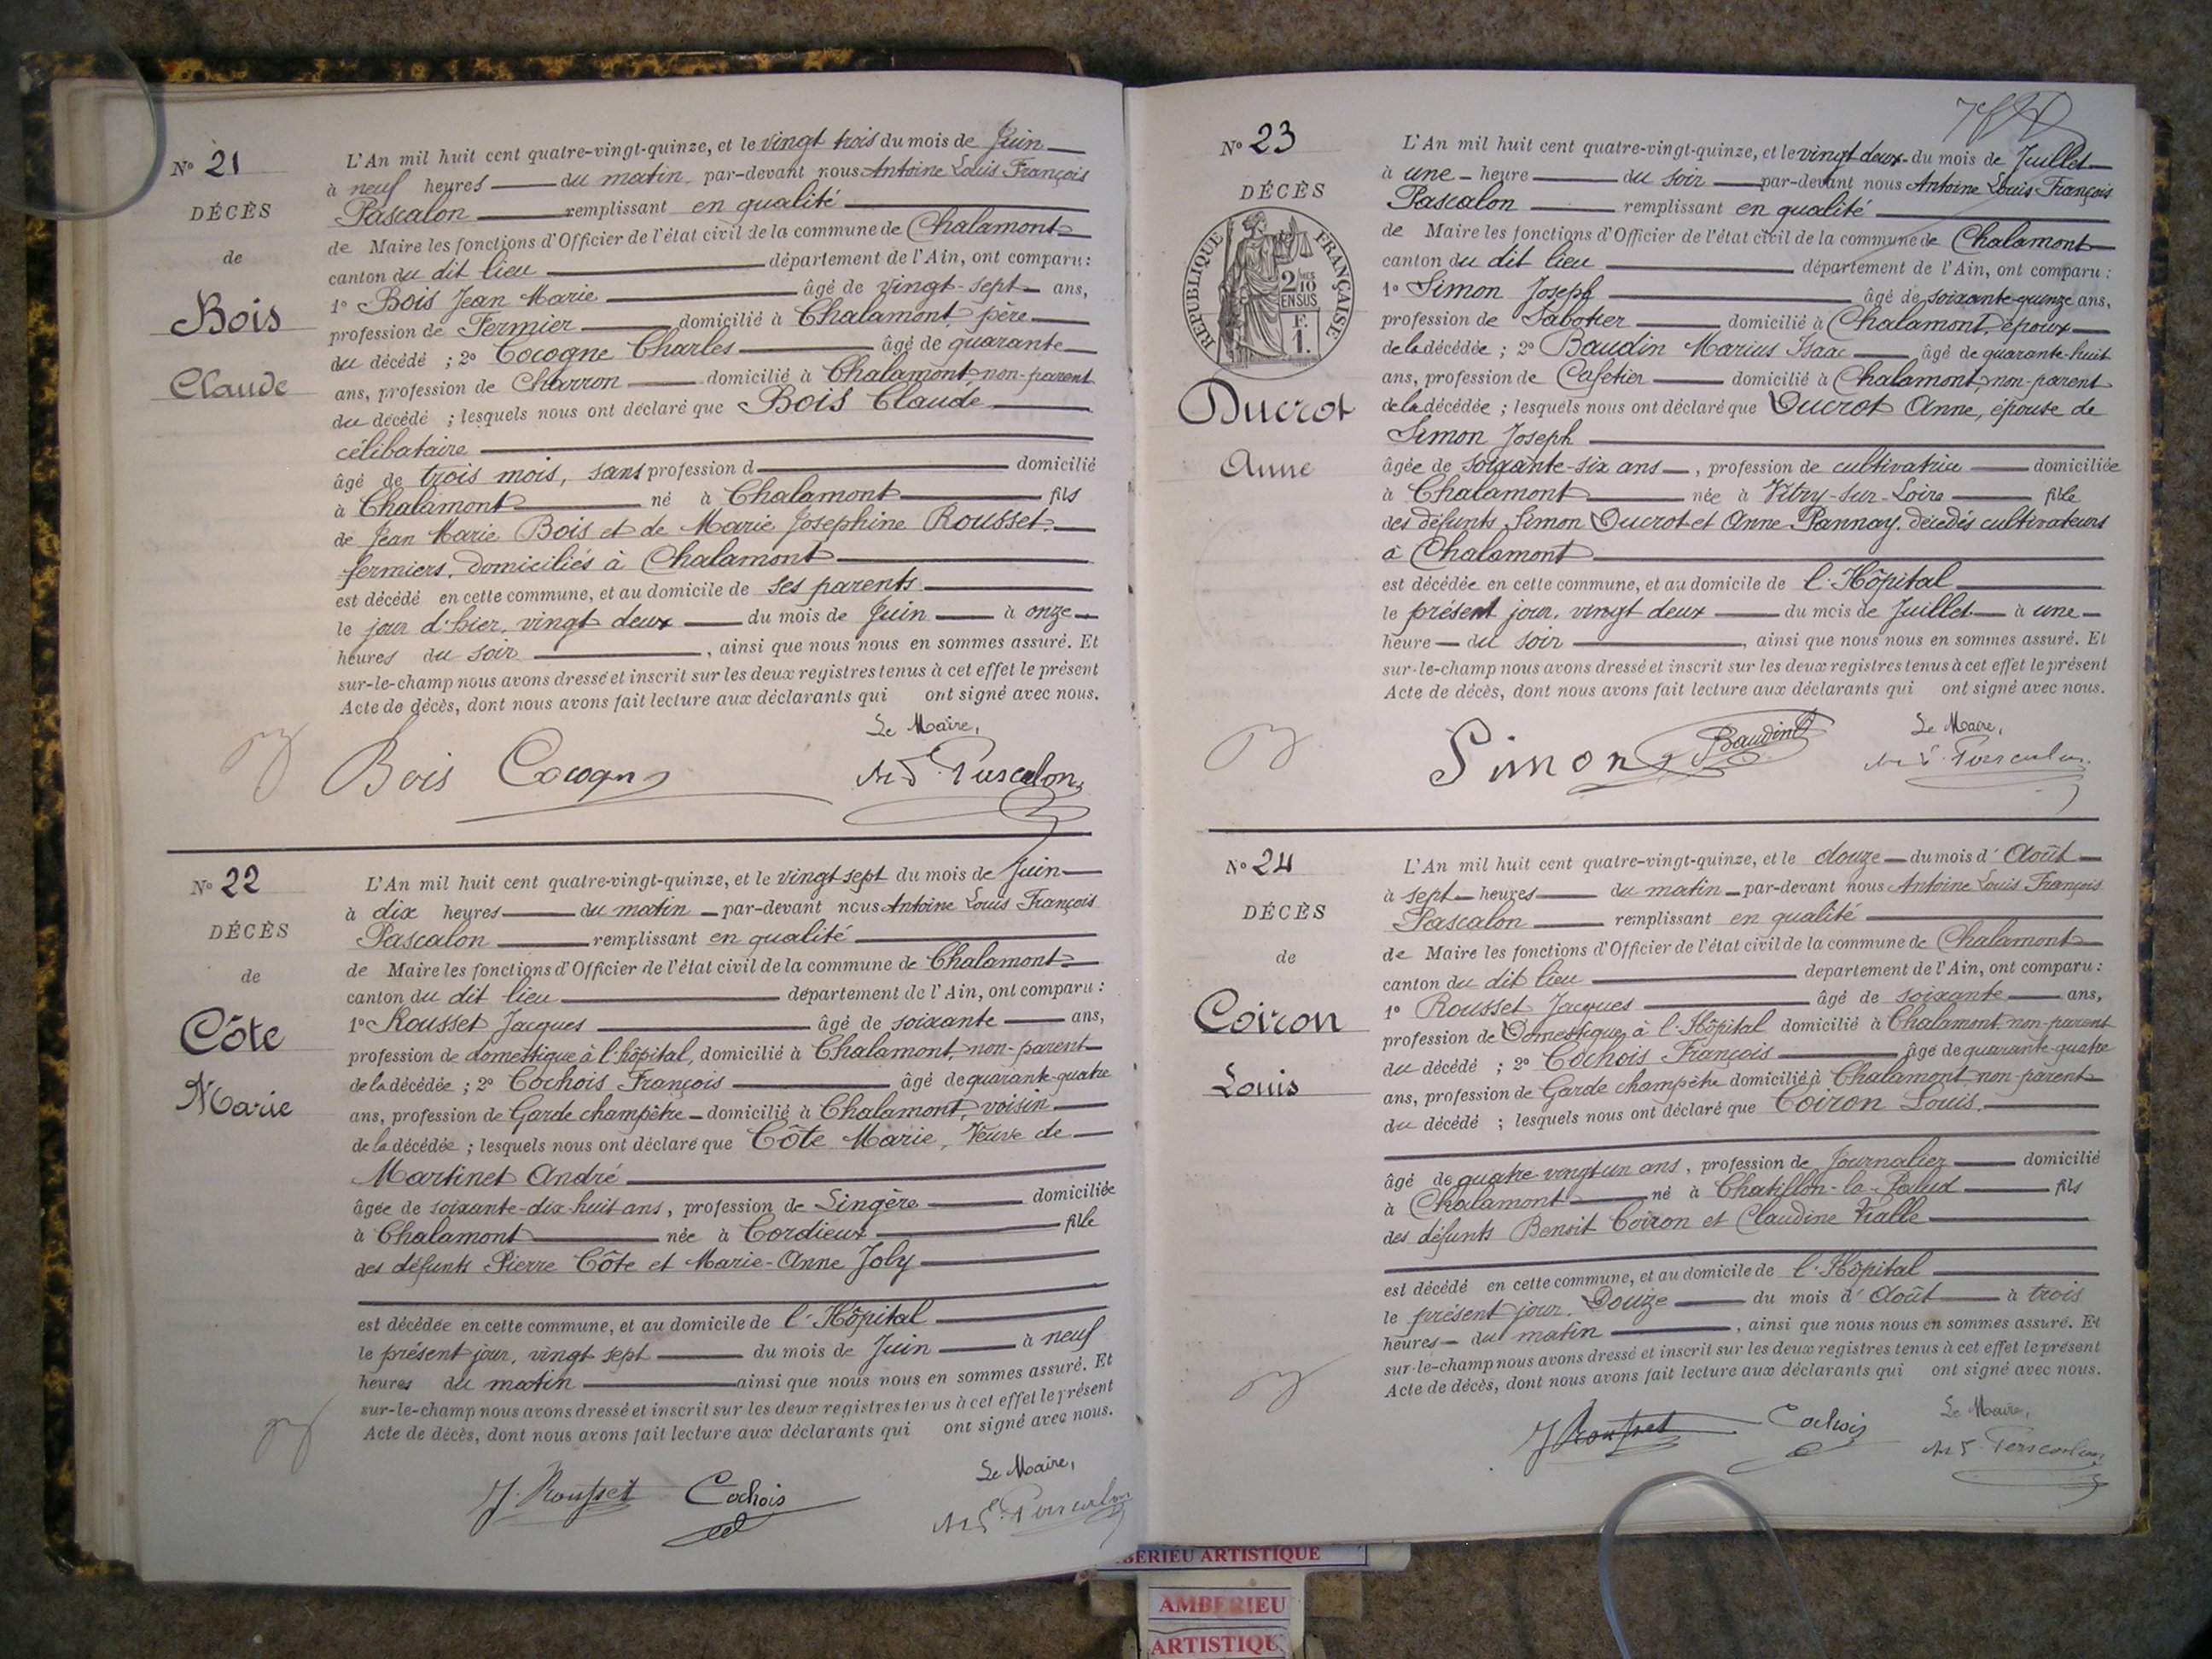 N° 21
DÉCÈS
de
Bois
Claude
L'An mil huit cent quatre-vingt-quinze, et le vingt trois du mois de Juin
à neuf heures du matin par-devant nous Antoine Louis François
Pascalon remplissant en qualité
de Maire les fonctions d'Officier de l'état civil de la commune de Chalamont
canton du dit lieu département de l'Ain, ont comparu :
1° Bois Jean Marie âgé de vingt-sept ans,
profession de Fermier domicilié à Chalamont, père
du décédé ; 2° Cocogne Charles âgé de quarante
ans, profession de Charron domicilié à Chalamont, non-parent
du décédé ; lesquels nous ont déclaré que Bois Claude
célibataire
âgé de trois mois, sans profession d domicilié
à Chalamont né à Chalamont fils
de Jean Marie Bois et de Marie Josephine Rousset.
fermiers, domiciliés à Chalamont
est décédé en cette commune, et au domicile de ses parents
le jour d'hier, vingt deux du mois de Juin à onze
heures du soir , ainsi que nous nous en sommes assuré. Et
sur-le-champ nous avons dressé et inscrit sur les deux registres tenus à cet effet le présent
Acte de décès, dont nous avons fait lecture aux déclarants qui ont signé avec nous.
Le Maire,
Bois Cocogne Pascalon
N° 22
DÉCÈS
de
Côte
Marie
L'An mil huit cent quatre-vingt-quinze, et le vingt sept du mois de Juin
à dix heures du matin par-devant nous Antoine Louis François
Pascalon remplissant en qualité
de Maire les fonctions d'Officier de l'état civil de la commune de Chalamont
canton du dit lieu département de l'Ain, ont comparu :
1° Rousset Jacques âgé de soixante ans,
profession de domestique à l'hôpital, domicilié à Chalamont, non-parent
de la décédée ; 2° Cochois François âgé de quarante-quatre
ans, profession de Garde champêtre domicilié à Chalamont, voisin
de la décédée ; lesquels nous ont déclaré que Côte Marie, Veuve de
Martinet André
âgée de soixante-dix-huit ans, profession de Lingère domiciliée
à Chalamont née à Cordieux fille
des défunts Pierre Côte et Marie-Anne Joly
est décédée en cette commune, et au domicile de l'Hôpital
le présent jour, vingt sept du mois de Juin à neuf
heures du matin ainsi que nous nous en sommes assuré. Et
sur-le-champ nous avons dressé et inscrit sur les deux registres tenus à cet effet le présent
Acte de décès, dont nous avons fait lecture aux déclarants qui ont signé avec nous.
Le Maire,
J. Rousset Cochois Pascalon
N° 23
DÉCÈS
RÉPUBLIQUE FRANÇAISE
2/10
EN SUS
F.
1.
Ducrot
Anne
L'An mil huit cent quatre-vingt-quinze, et le vingt deux du mois de Juillet
à une heure du soir par-devant nous Antoine Louis François
Pascalon remplissant en qualité
de Maire les fonctions d'Officier de l'état civil de la commune de Chalamont
canton du dit lieu département de l'Ain, ont comparu :
1° Simon Joseph âgé de soixante-quinze ans,
profession de Sabotier domicilié à Chalamont, époux
de la décédée ; 2° Baudin Marius Isaac âgé de quarante-huit
ans, profession de Cafetier domicilié à Chalamont, non-parent
de la décédée ; lesquels nous ont déclaré que Ducrot Anne, épouse de
Simon Joseph
âgée de soixante-six ans , profession de cultivatrice domiciliée
à Chalamont née à Vitry-sur-Loire fille
des défunts Simon Ducrot et Anne Pannay, décédés cultivateurs
à Chalamont
est décédée en cette commune, et au domicile de l'Hôpital
le présent jour, vingt deux du mois de Juillet à une
heure du soir , ainsi que nous nous en sommes assuré. Et
sur-le-champ nous avons dressé et inscrit sur les deux registres tenus à cet effet le présent
Acte de décès, dont nous avons fait lecture aux déclarants qui ont signé avec nous.
Le Maire,
Simon Baudin Pascalon
N° 24
DÉCÈS
de
Coiron
Louis
L'An mil huit cent quatre-vingt-quinze, et le douze du mois d'Août
à sept heures du matin par-devant nous Antoine Louis François
Pascalon remplissant en qualité
de Maire les fonctions d'Officier de l'état civil de la commune de Chalamont
canton du dit lieu département de l'Ain, ont comparu :
1° Rousset Jacques âgé de soixante ans,
profession de Domestique à l'Hôpital domicilié à Chalamont, non-parent
du décédé ; 2° Cochois François âgé de quarante-quatre
ans, profession de Garde champêtre domicilié à Chalamont, non-parent
du décédé ; lesquels nous ont déclaré que Coiron Louis.
âgé de quatre-vingt un ans, profession de Journalier domicilié
à Chalamont né à Chatillon-la-Palud fils
des défunts Benoit Coiron et Claudine Vialle
est décédé en cette commune, et au domicile de l'Hôpital
le présent jour, Douze du mois d'Août à trois
heures du matin , ainsi que nous nous en sommes assuré. Et
sur-le-champ nous avons dressé et inscrit sur les deux registres tenus à cet effet le présent
Acte de décès, dont nous avons fait lecture aux déclarants qui ont signé avec nous.
Le Maire,
J Rousset Cochois Pascalon
AMBERIEU ARTISTIQUE
AMBERIEU
ARTISTIQU